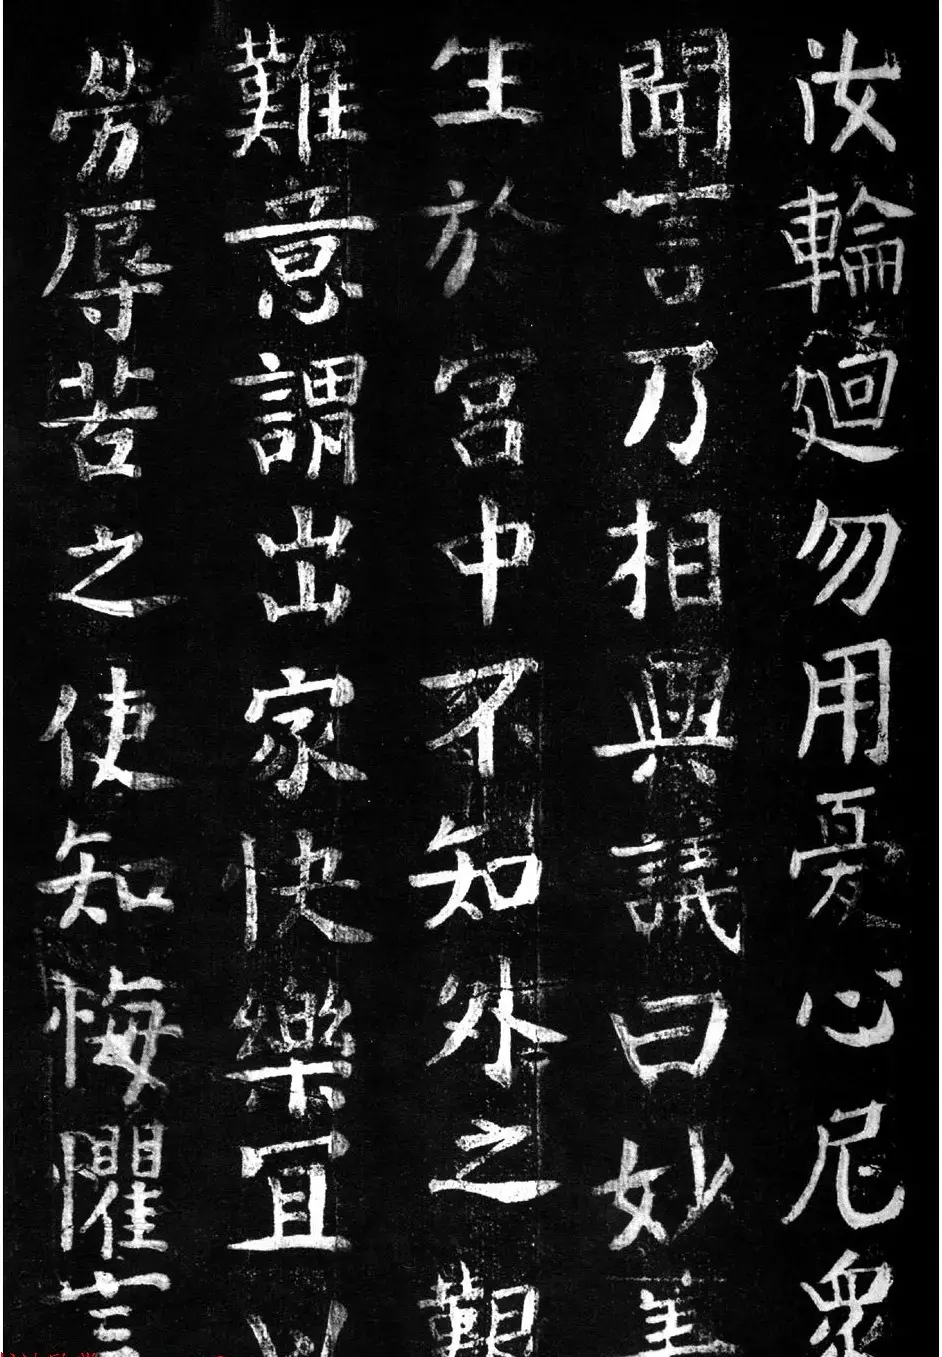 汝輪廻勿用憂心尼眾
聞言乃相興議曰妙善
生於宮中不知外之艱
難意謂出家快樂宜以
勞辱苦之使知悔懼言